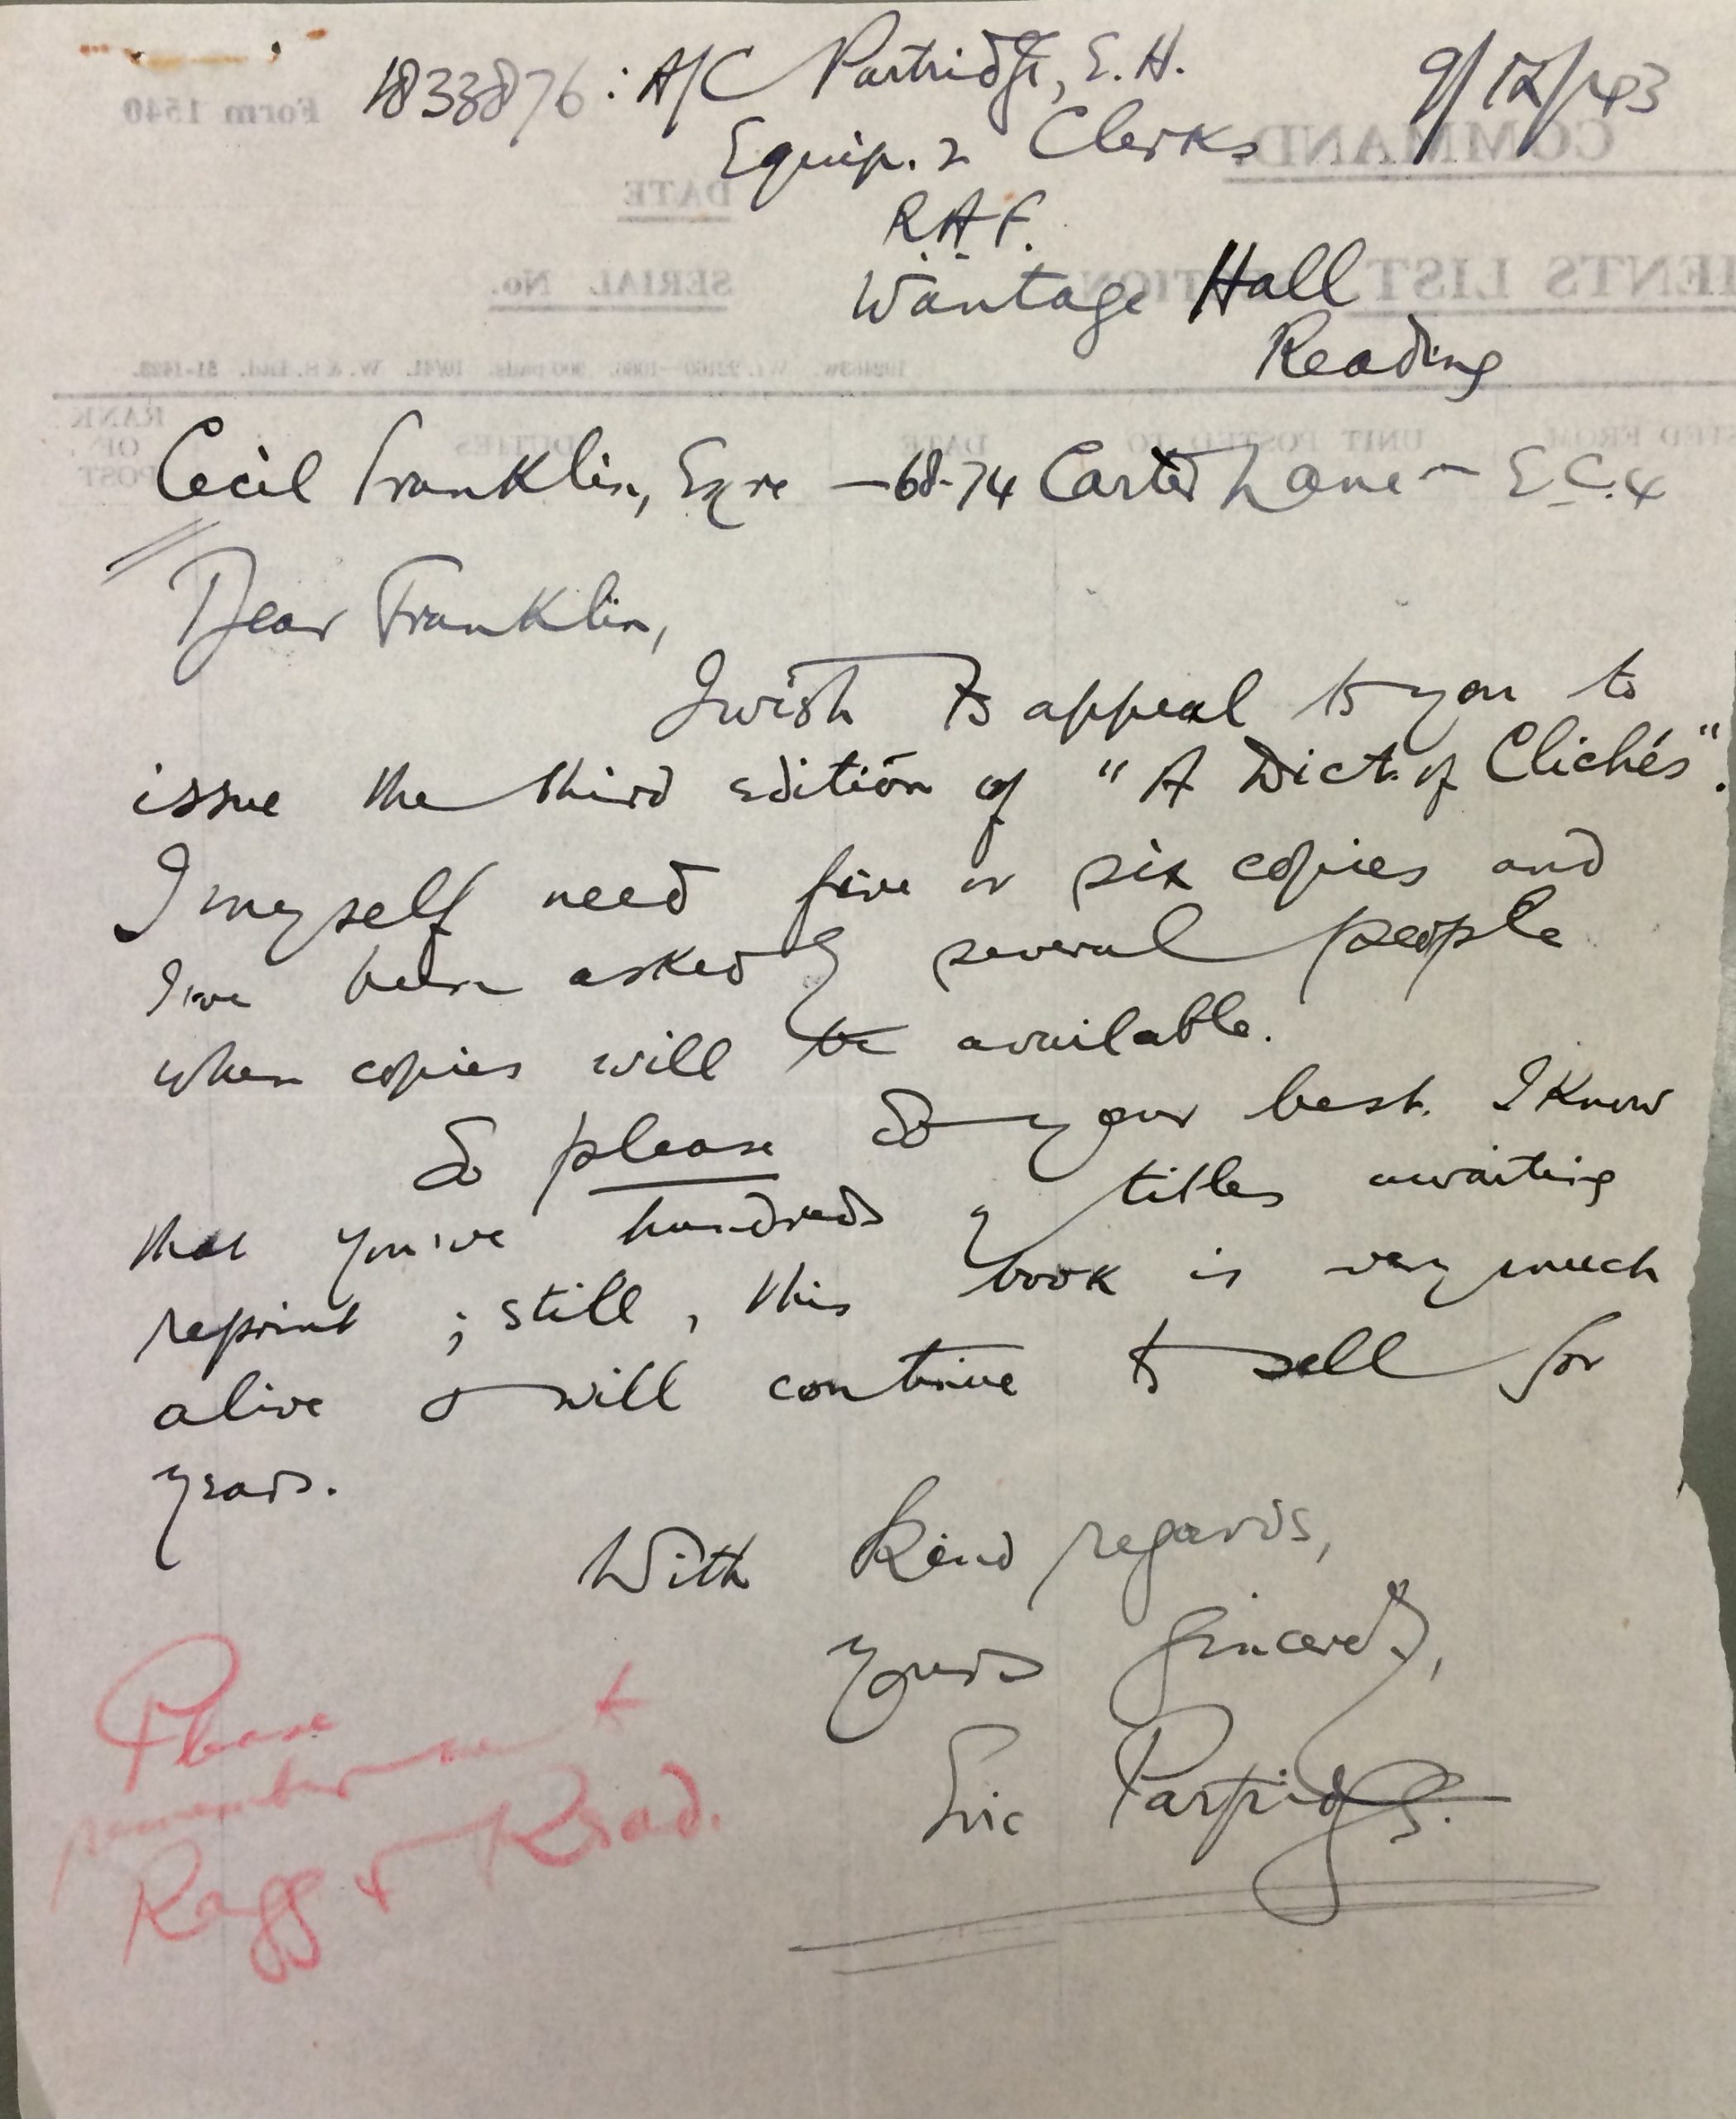 1833876: A/C Partridge, E. H. 9/12/43
Equip. & Clerks
R.A.F.
Wantage Hall
Reading
Form 1540
COMMAND
DATE
SERIAL No.
LIST
RANK OF POST
DUTIES
DATE
UNIT POSTED TO
Cecil Franklin, Esqre — 68-74 Carter Lane — E.C.4
Dear Franklin,
I wish to appeal to you to
issue the third edition of "A Dict. of Clichés".
I myself need five or six copies and
I've been asked by several people
when copies will be available.
So please do your best. I know
that you've hundreds of titles awaiting
reprint; still, this book is very much
alive & will continue to sell for
years.
With kind regards,
Yours sincerely,
Eric Partridge.
Please
remember me to
Ragg & Read.